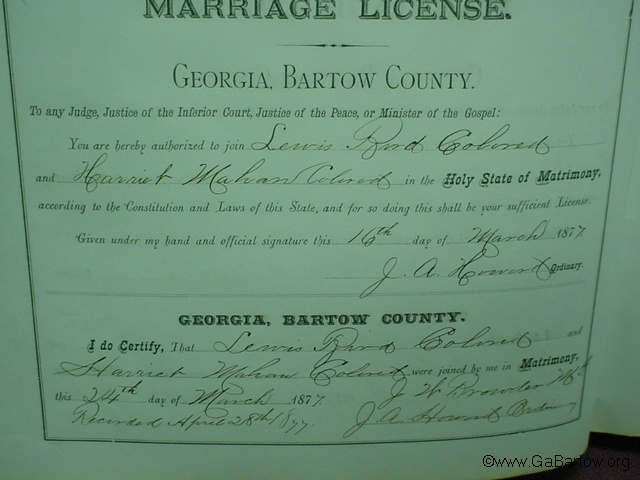 MARRIAGE LICENSE.
GEORGIA, BARTOW COUNTY.
To any Judge, Justice of the Inferior Court, Justice of the Peace, or Minister of the Gospel:
You are hereby authorized to join Lewis Bird Colored
and Harriet Mahan Colored in the Holy State of Matrimony,
according to the Constitution and Laws of this State, and for so doing this shall be your sufficient License.
Given under my hand and official signature this 16th day of March 1877.
J. A. Howard Ordinary.
GEORGIA, BARTOW COUNTY.
I do Certify, That Lewis Bird Colored and
Harriet Mahan Colored were joined by me in Matrimony,
this 24th day of March 1877. J W Browder
Recorded April 28th 1877. J. A. Howard Ordinary
©www.GaBartow.org